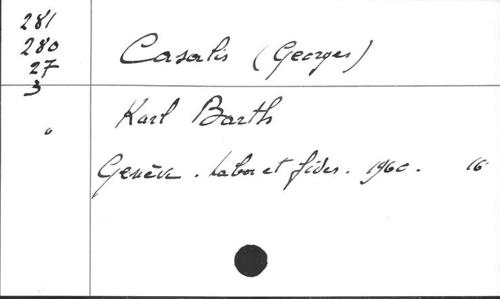 281
280
27
3
Casalis (Georges)
Karl Barth
Genève. Labor et fides. 1960. 16